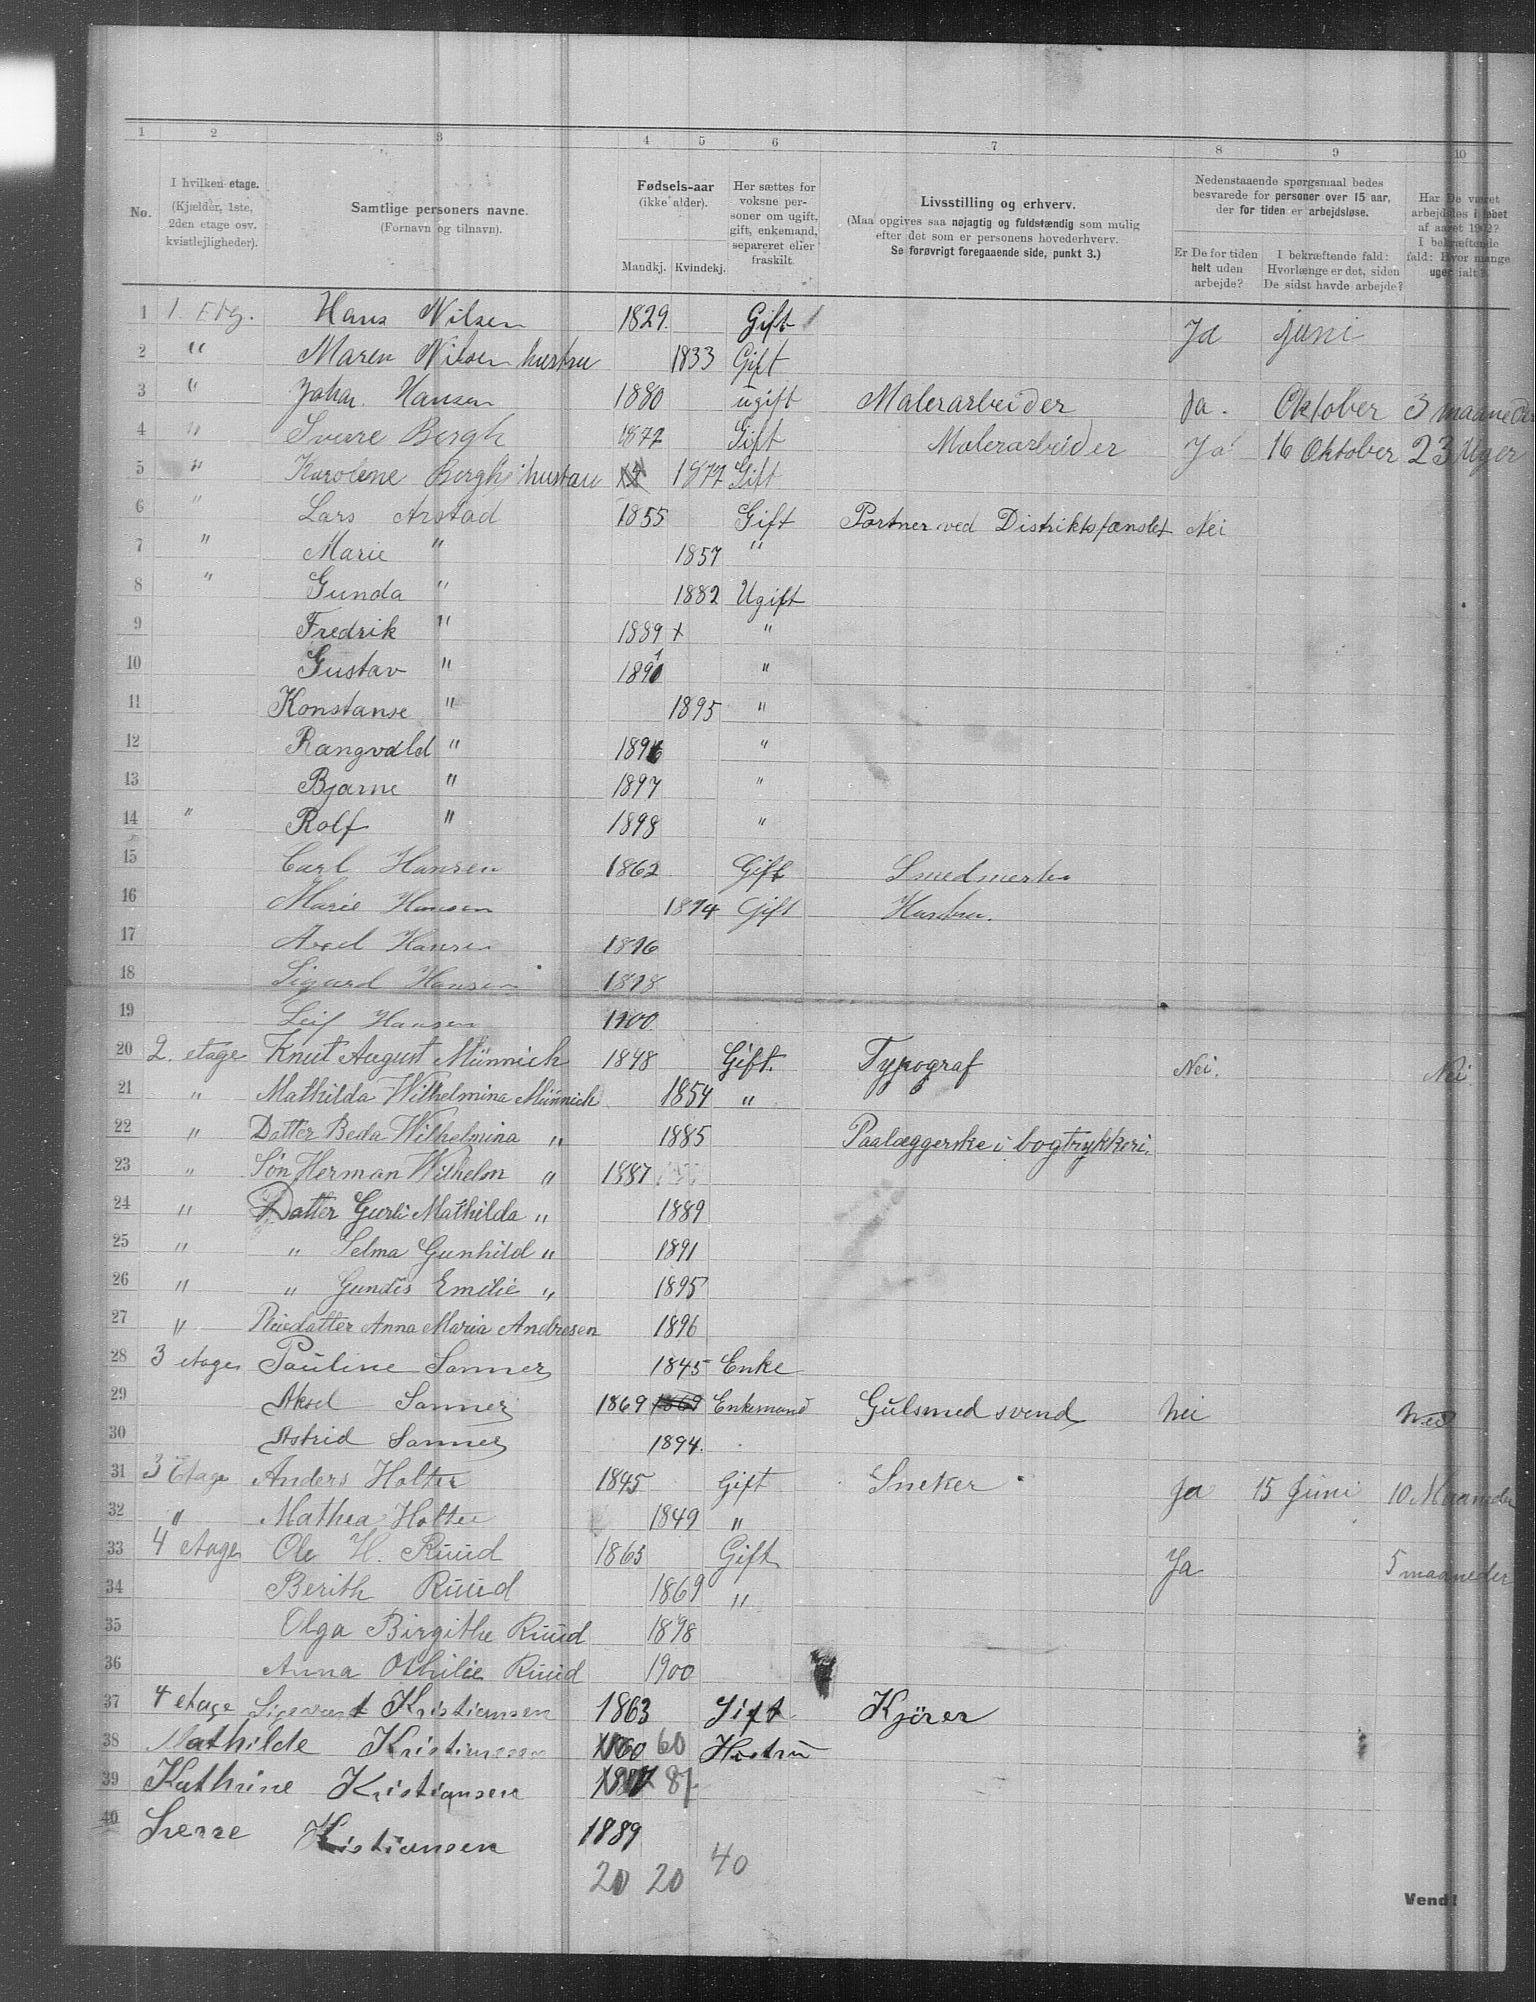 1 2 3 4 5 6 7 8 9 10
No.
I hvilken etage.
(Kjælder, 1ste,
2den etage osv.
kvistlejligheder).
Samtlige personers navne.
(Fornavn og tilnavn).
Fødsels-aar
(ikke alder).
Mandkj. Kvindekj.
Her sættes for
voksne per-
soner om ugift,
gift, enkemand,
separeret eller
fraskilt.
Livsstilling og erhverv.
(Maa opgives saa nøjagtig og fuldstændig som mulig
efter det som er personens hovederhverv.
Se forøvrigt foregaaende side, punkt 3.)
Nedenstaaende spørgsmaal bedes
besvarede for personer over 15 aar,
der for tiden er arbejdsløse.
Er De for tiden
helt uden
arbejde?
I bekræftende fald:
Hvorlænge er det, siden
De sidst havde arbejde?
Har De været
arbejdsløs i løbet
af aaret 1902?
I bekræftende
fald: Hvor mange
uger ialt?
1 1. Etg. Hans Nilsen 1829. Gift Ja juni
2 " Maren Nilsen hustru 1833 Gift
3 " Johan Hansen 1880 ugift Malerarbeider Ja. Oktober 3 maaneder
4 " Sverre Bergh 1877 Gift Malerarbeider Ja 16 Oktober 23 Uger
5 " Karoline Bergh hustru 1877 Gift
6 " Lars Arstad 1855 Gift Portner ved Distriktsfænslet Nei
7 " Marie " 1857 "
8 " Gunda " 1882 Ugift
9 Fredrik " 1889 + "
10 Gustav " 1891 "
11 Konstanse " 1895 "
12 Rangvald " 1896 "
13 Bjarne " 1897 "
14 " Rolf " 1898 "
15 Carl Hansen 1862 Gift
16 Marie Hansen 1874 Gift Hustru.
17 Axel Hansen 1896
18 Sigurd Hansen 1898
19 Leif Hansen 1900
20 2. etage Knut August Münnich 1848 Gift. Typograf Nei. Nei
21 " Mathilda Wilhelmina Münnich 1854 "
22 " Datter Beda Wilhelmina " 1885 Paalæggerske i bogtrykkeri.
23 " Søn Herman Wilhelm " 1887
24 " Datter Gurli Mathilda " 1889
25 " " Selma Gunhild " 1891
26 " " Gundis Emilie " 1895
27 " Pleiedatter Anna Maria Andresen 1896
28 3 etage Pauline Sanner 1845 Enke
29 Aksel Sanner 1869 1869 Enkemand Gulsmed svend Nei Nei
30 Astrid Sanner 1894.
31 3 Etage Anders Holter 1845 Gift Sneker Ja 15 Juni 10 Maaneder
32 " Mathea Holter 1849 "
33 4 etage Ole H. Ruud 1865 Gift Ja 5 maaneder
34 Berith Ruud 1869 "
35 Olga Birgithe Ruud 1898
36 Anna Othilie Ruud 1900
37 4 etage Kristiansen 1863 Gift Kjører
38 Mathilde Kristiansen 60 Hustru
39 Kathrine Kristiansen 87
40 Sverre Kristiansen 1889
20 20 40
Vend!